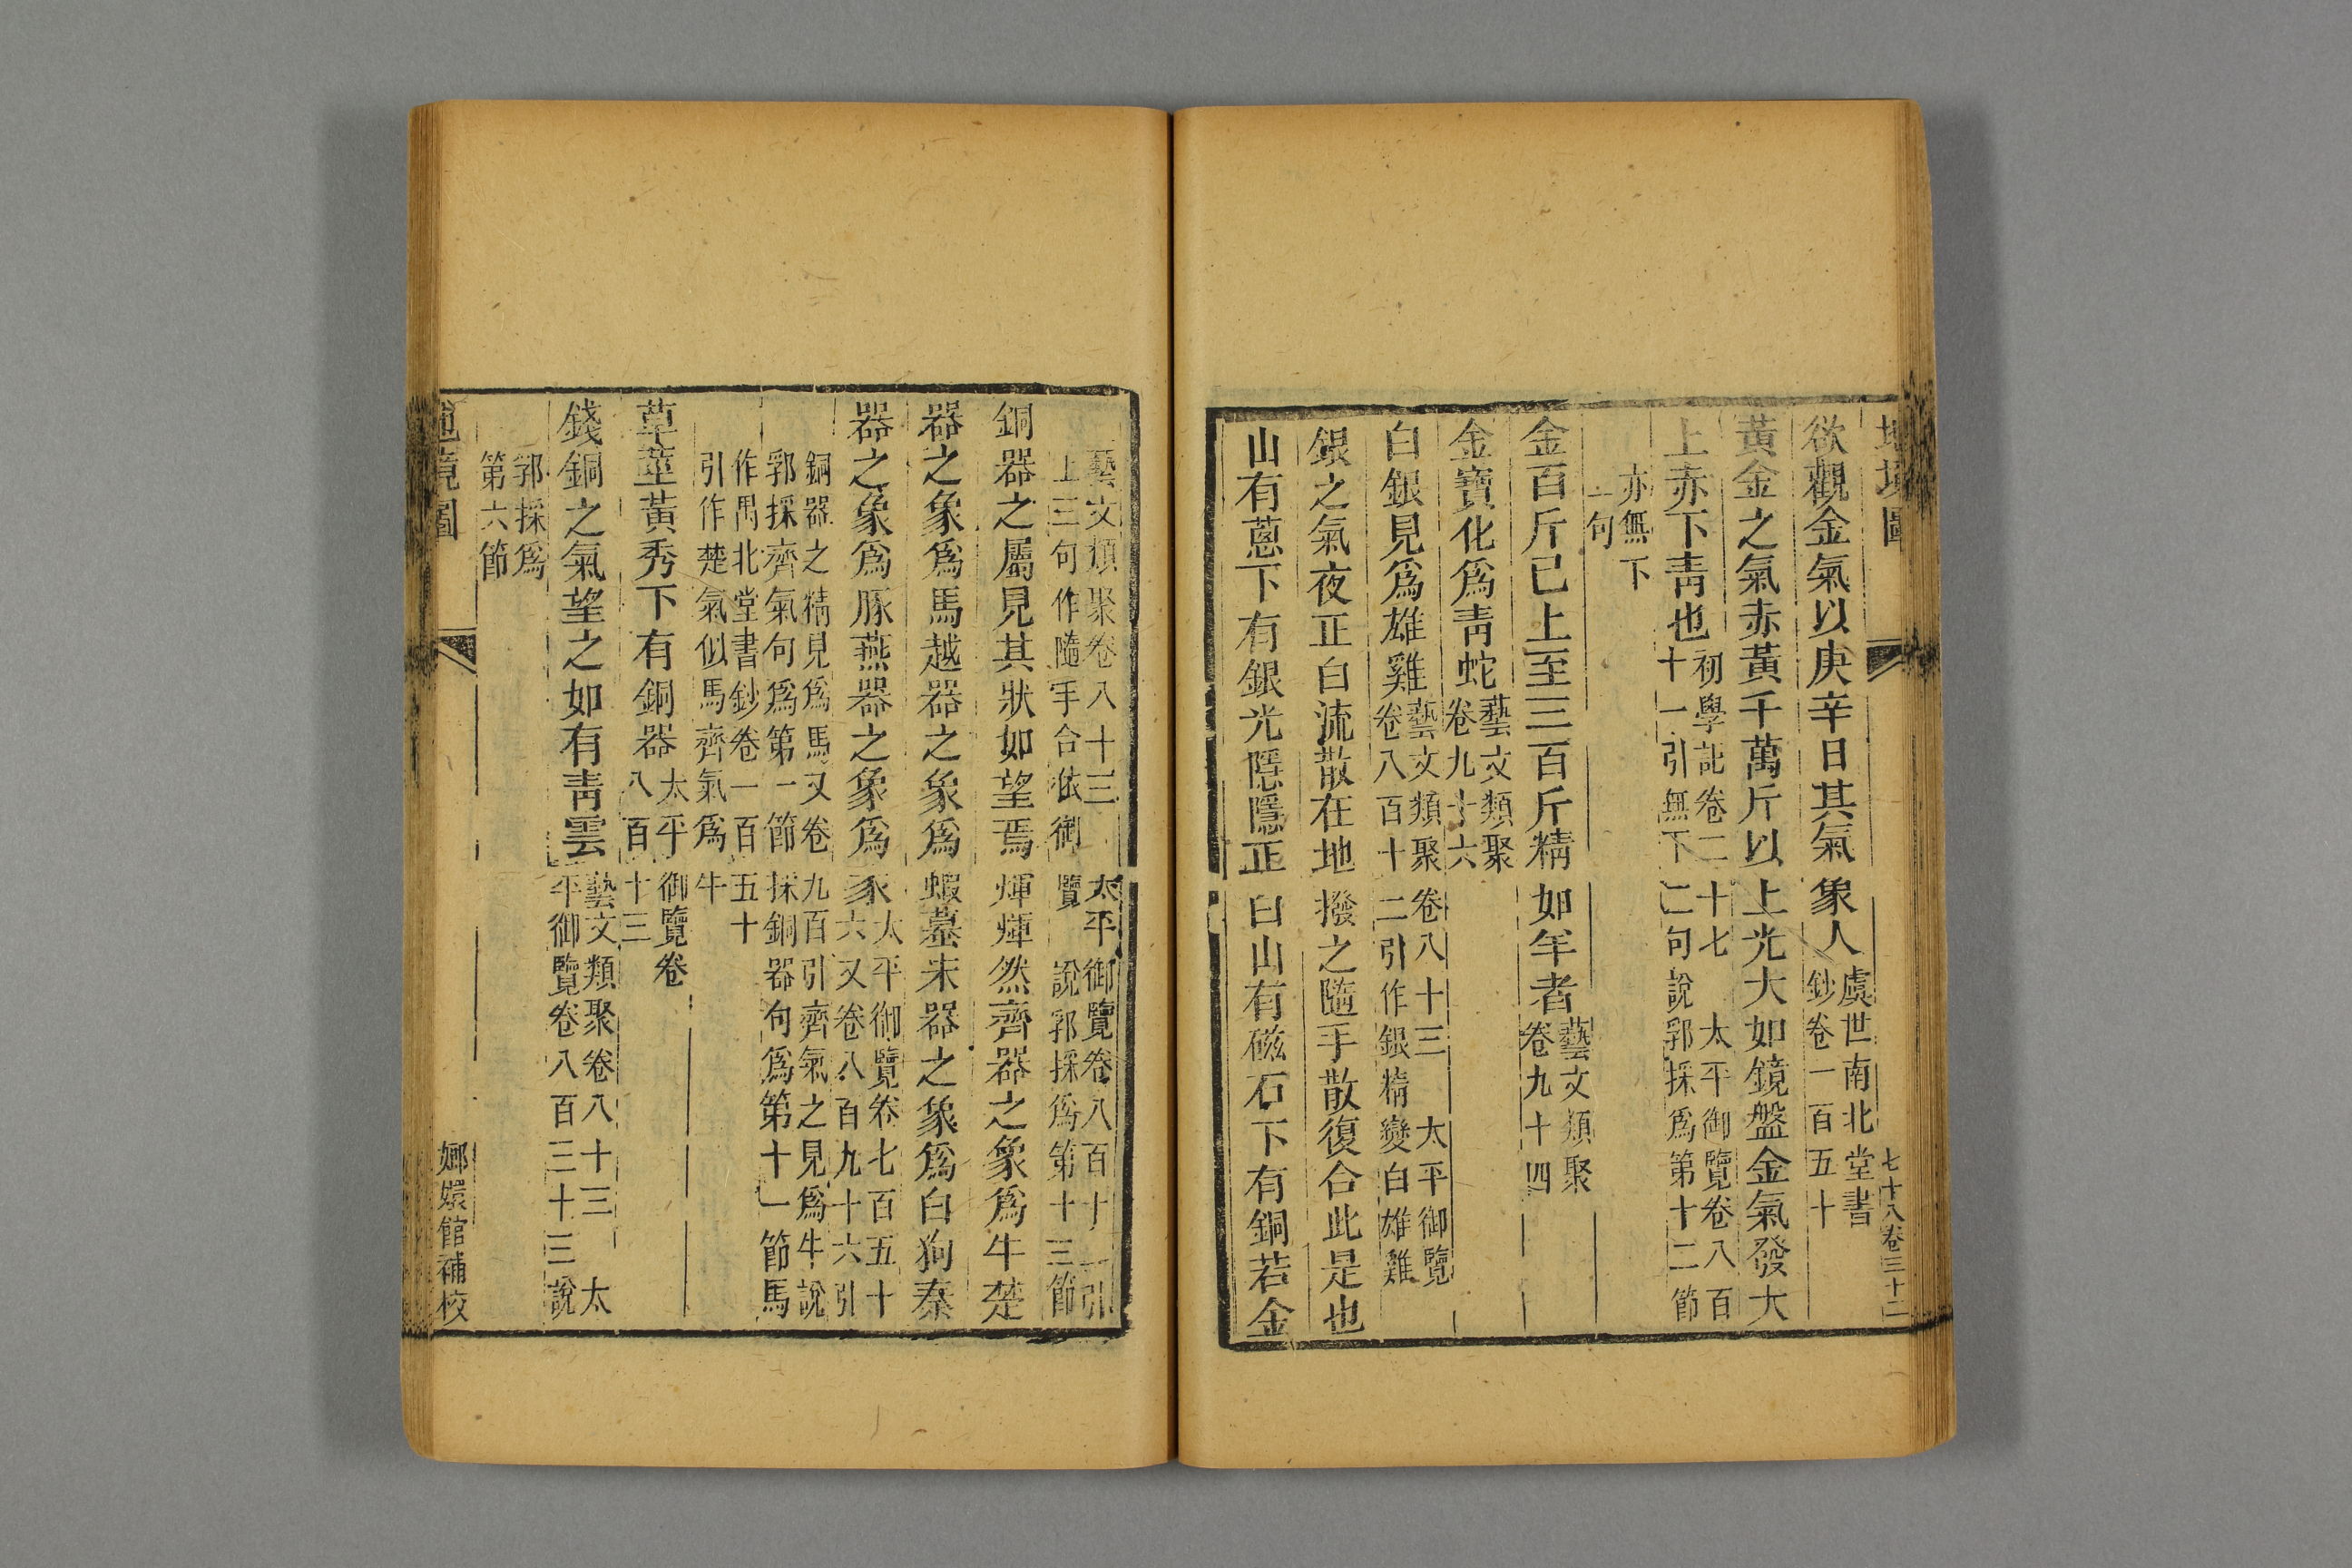 地境圖
七十八卷三十二
欲觀金氣以庚辛日其氣象人
虞世南北堂書
鈔卷一百五十
黃金之氣赤黃千萬斤以上光大如鏡盤金氣發大
上赤下青也
初學記卷二十七 太平御覽卷八百
十一引無下二句說郛採爲第十二節
亦無下
二句
金百斤已上至三百斤精如羊者
藝文類聚
卷九十四
金寶化爲青蛇
藝文類聚
卷九十六
白銀見爲雄雞
藝文類聚卷八十三 太平御覽
卷八百十二引作銀精變白雄雞
銀之氣夜正白流散在地撥之隨手散復合此是也
山有蔥下有銀光隱隱正白山有磁石下有銅若金
藝文類聚卷八十三 太平御覽卷八百十一引
上三句作隨手合依御覽 說郛採爲第十三節
銅器之屬見其狀如望焉煇煇然齊器之象爲牛楚
器之象爲馬越器之象爲蝦蟇宋器之象爲白狗秦
器之象爲豚燕器之象爲豕
太平御覽卷七百五十
六又卷八百九十六引
銅器之精見爲馬又卷九百引齊氣之見爲牛說
郛採齊氣句爲第一節採銅器句爲第十一節馬
作禺北堂書鈔卷一百五十
引作楚氣似馬齊氣爲牛
草莖黃秀下有銅器
太平御覽卷
八百十三
錢銅之氣望之如有青雲
藝文類聚卷八十三 太
平御覽卷八百三十三說
郛採爲
第六節
地境圖
嫏嬛館補校